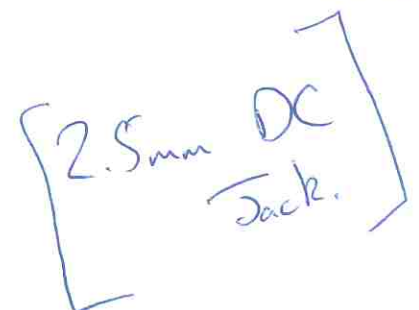 [2.5mm DC
Jack.]